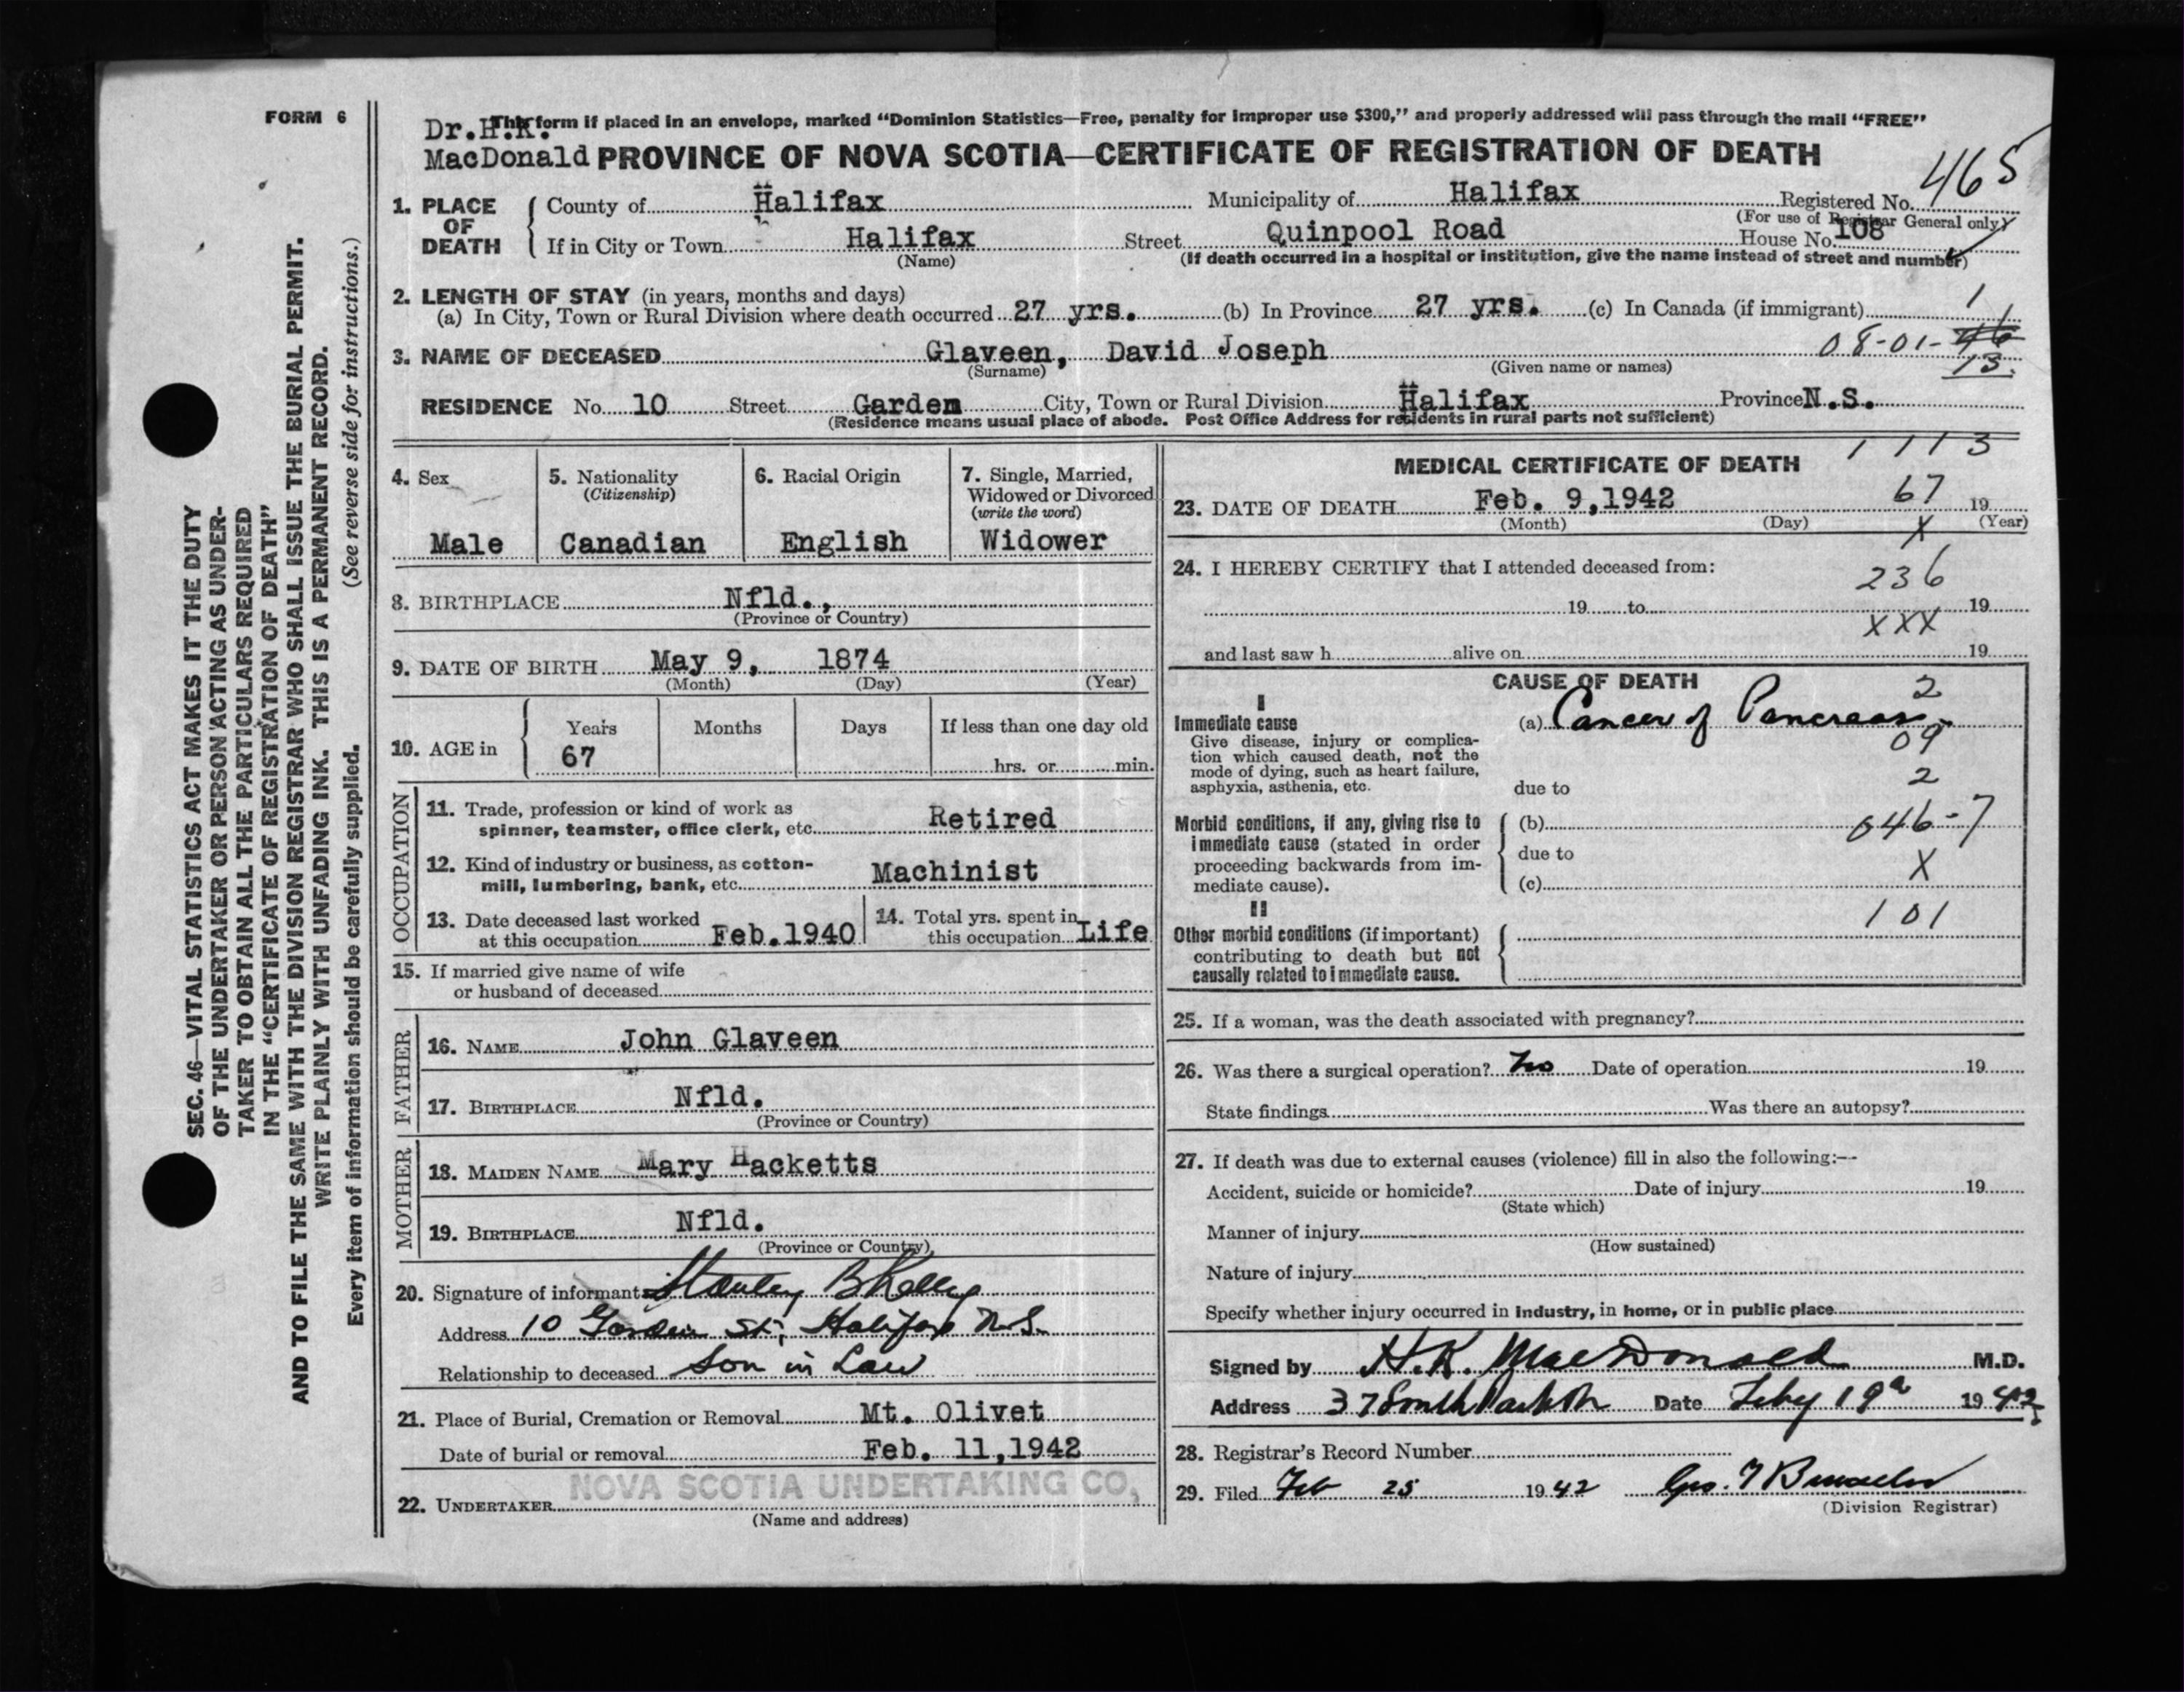 FORM 6
Dr. H.K.
MacDonald
This form if placed in an envelope, marked "Dominion Statistics—Free, penalty for improper use $300," and properly addressed will pass through the mail "FREE"
PROVINCE OF NOVA SCOTIA—CERTIFICATE OF REGISTRATION OF DEATH
465
1. PLACE OF DEATH { County of Halifax Municipality of Halifax Registered No.
(For use of Registrar General only)
If in City or Town Halifax Street Quinpool Road House No. 108
(Name) (If death occurred in a hospital or institution, give the name instead of street and number)
2. LENGTH OF STAY (in years, months and days)
(a) In City, Town or Rural Division where death occurred 27 yrs. (b) In Province 27 yrs. (c) In Canada (if immigrant)
3. NAME OF DECEASED Glaveen, David Joseph 08-01-46
(Surname) (Given name or names) 13.
RESIDENCE No. 10 Street Garden City, Town or Rural Division Halifax Province N.S.
(Residence means usual place of abode. Post Office Address for residents in rural parts not sufficient)
4. Sex
Male
5. Nationality
(Citizenship)
Canadian
6. Racial Origin
English
7. Single, Married,
Widowed or Divorced
(write the word)
Widower
8. BIRTHPLACE Nfld.,
(Province or Country)
9. DATE OF BIRTH May 9, 1874
(Month) (Day) (Year)
10. AGE in { Years Months Days If less than one day old
67 hrs. or min.
OCCUPATION
11. Trade, profession or kind of work as
spinner, teamster, office clerk, etc. Retired
12. Kind of industry or business, as cotton-
mill, lumbering, bank, etc. Machinist
13. Date deceased last worked
at this occupation Feb.1940
14. Total yrs. spent in
this occupation Life
15. If married give name of wife
or husband of deceased
FATHER
16. NAME John Glaveen
17. BIRTHPLACE Nfld.
(Province or Country)
MOTHER
18. MAIDEN NAME Mary Hacketts
19. BIRTHPLACE Nfld.
(Province or Country)
20. Signature of informant Stanley B Kelly
Address 10 Garden St, Halifax N.S.
Relationship to deceased Son in Law
21. Place of Burial, Cremation or Removal Mt. Olivet
Date of burial or removal Feb. 11,1942
22. UNDERTAKER NOVA SCOTIA UNDERTAKING CO,
(Name and address)
1113
MEDICAL CERTIFICATE OF DEATH
23. DATE OF DEATH Feb. 9,1942 67 19
(Month) (Day) (Year)
X
24. I HEREBY CERTIFY that I attended deceased from:
236
19 to 19
XXX
and last saw h alive on 19
CAUSE OF DEATH 2
I
Immediate cause (a) Cancer of Pancreas
Give disease, injury or complica-
tion which caused death, not the
mode of dying, such as heart failure,
asphyxia, asthenia, etc.
09
2
due to
Morbid conditions, if any, giving rise to
immediate cause (stated in order
proceeding backwards from im-
mediate cause).
(b) 046-7
due to
X
(c)
II
101
Other morbid conditions (if important)
contributing to death but not
causally related to immediate cause.
25. If a woman, was the death associated with pregnancy?
26. Was there a surgical operation? No Date of operation 19
State findings Was there an autopsy?
27. If death was due to external causes (violence) fill in also the following:--
Accident, suicide or homicide? Date of injury 19
(State which)
Manner of injury
(How sustained)
Nature of injury
Specify whether injury occurred in industry, in home, or in public place
Signed by H.K. MacDonald M.D.
Address 37 South Park St Date Feby 19 1942
28. Registrar's Record Number
29. Filed Feb 25 1942 Geo. F
(Division Registrar)
SEC. 46—VITAL STATISTICS ACT MAKES IT THE DUTY
OF THE UNDERTAKER OR PERSON ACTING AS UNDER-
TAKER TO OBTAIN ALL THE PARTICULARS REQUIRED
IN THE "CERTIFICATE OF REGISTRATION OF DEATH"
AND TO FILE THE SAME WITH THE DIVISION REGISTRAR WHO SHALL ISSUE THE BURIAL PERMIT.
WRITE PLAINLY WITH UNFADING INK. THIS IS A PERMANENT RECORD.
Every item of information should be carefully supplied. (See reverse side for instructions.)